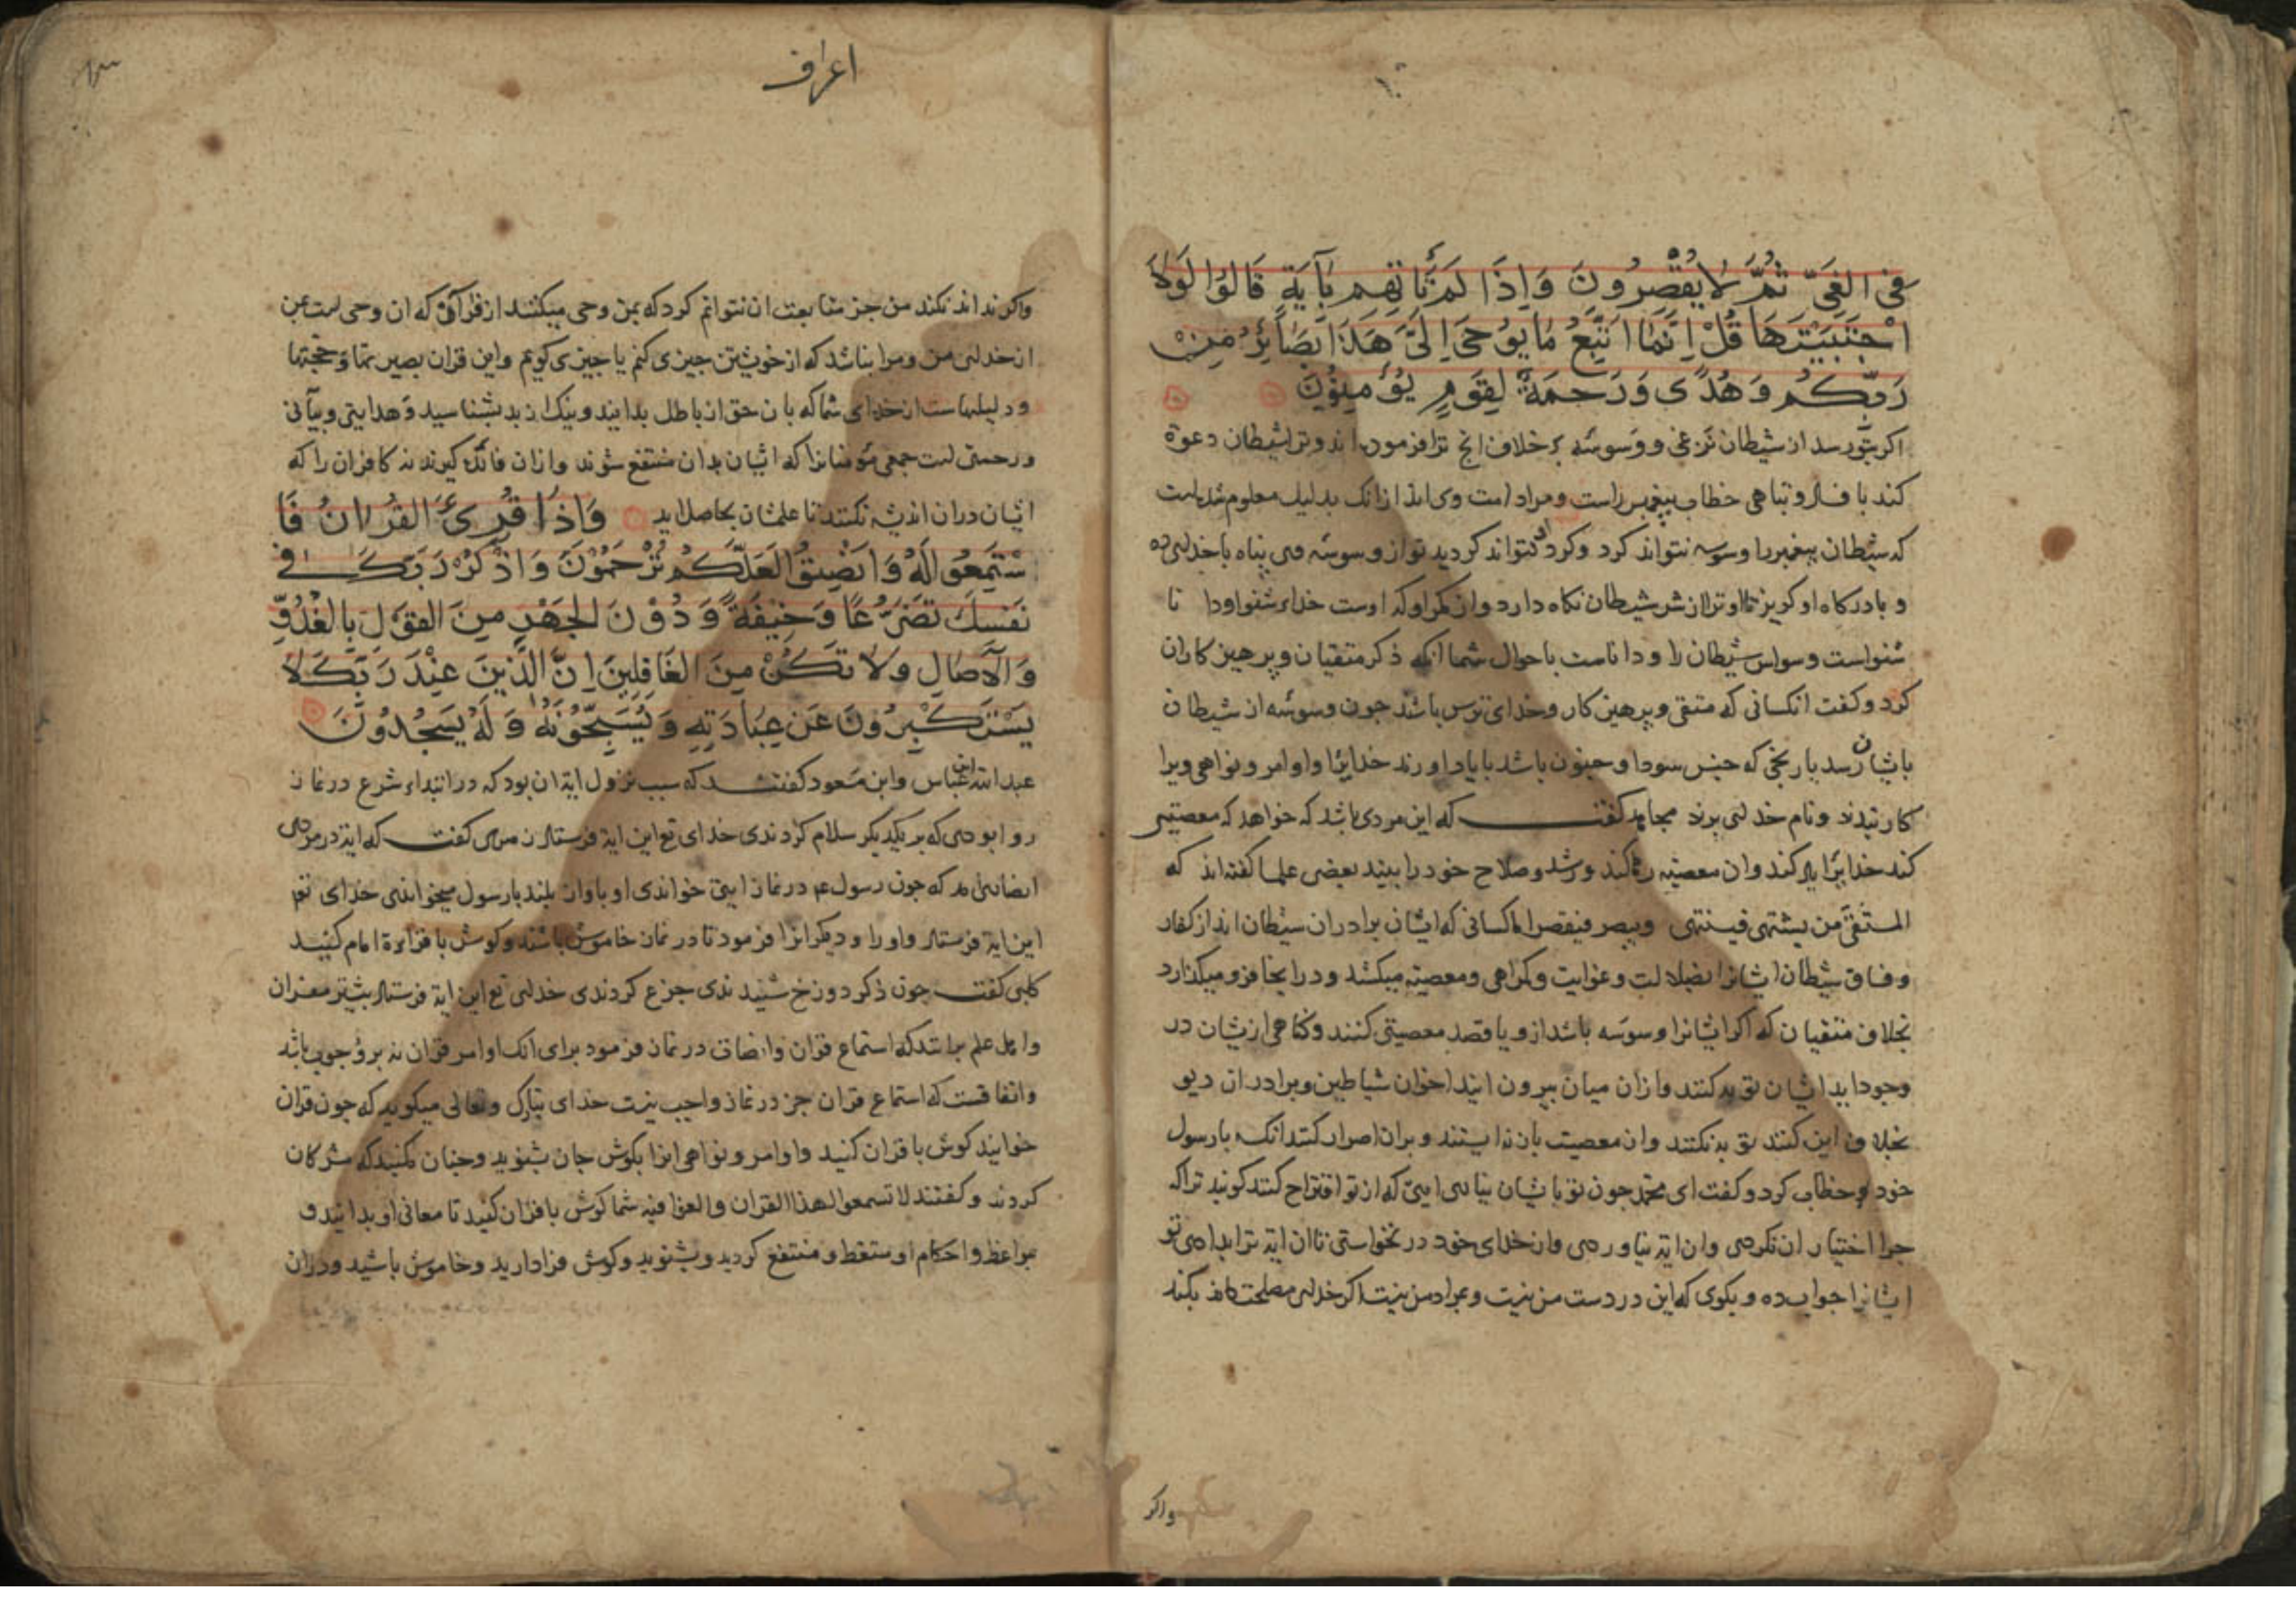 فِي الْغَيِّ ثُمَّ لَا يُقْصِرُونَ وَاِذَا لَمْ تَأْتِهِمْ بِآيَةٍ قَالُوا لَوْلَا
اجْتَبَيْتَهَا قُلْ اِنَّمَا اَتَّبِعُ مَا يُوحَى اِلَيَّ هَذَا بَصَائِرُ مِنْ
رَبِّكُمْ وَهُدًى وَرَحْمَةٌ لِقَوْمٍ يُؤْمِنُونَ
اکر بتو رسد از شیطان نزغی و وسوسه بر خلاف انچ ترا فرموده اند و ترا شیطان دعوة
کند با فساد و تباهی خطاب پیغمبر راست و مراد امت وی اند از انک بدلیل معلوم شده است
که شیطان پیغمبر را وسوسه نتواند کرد و کرد نتواند کردید تو از وسوسه وی پناه با خدای ده
و با درکاه او کریز تا او ترا از شر شیطان نکاه دارد و از مکر او که اوست خدای شنوا و دا نا
شنواست وسواس شیطان را و داناست باحوال شما انکه ذکر متقیان و پرهیز کاران
کرد و کفت انکسانی که متقی و پرهیز کار و خدای ترس باشند جون وسوسه از شیطان
بایشان رسد یا رنجی که جنس سودا و جنون باشد با یاد اورند خدایرا و اوامر و نواهی ویرا
کار بندند و نام خدای برند مجاهد کفت که این مردی باشد که خواهد که معصیتی
کند خدایرا یاد کند وان معصیة رها کند و رشد و صلاح خود را بیند بعضی علما کفته اند که
المتقی من یشتهی فینتهی ویبصر فیقصر اما کسانی که ایشان برادران شیطان اند از کفار
و فساق شیطان ایشانرا بضلالت و غوایت و کمراهی و معصیة میکشد و در اینجا فرو میکذارد
بخلاف متقیان که اکر ایشانرا وسوسه باشد از وی یا قصد معصیتی کنند و کناهی ازیشان در
وجود اید ایشان توبه کنند و ازان میان بیرون ایند اخوان شیاطین و برادران دیو
بخلاف این کنند توبه نکنند و ان معصیت بازنه ایستند و بران اصرار کنند انکه با رسول
خود خطاب کرد و کفت ای محمد جون تو با ایشان نیایی ایتی که از تو اقتراح کنند کویند تراکه
جرا اختیار ان نکردی و ان ایة نیاوردی و از خدای خود در نخواستی تا ان ایة ترا بدادی تو
ایشانرا جواب ده و بکوی که این در دست من نیست و بمراد من نیست اکر خدای مصلحت داند بکند
واکر
اعراف
واکر نداند نکند من جز متابعت ان نتوانم کرد که بمن وحی میکنند از قران که ان وحی است بمن
از خدای من و مرا نباشد که از خویشتن جیزی کنم یا جیزی کویم و این قران بصیرتها و حجتها
و دلیلهاست از خدای شما که بان حق از باطل بدانید و نیک از بد بشناسید و هدایتی و بیانی
و رحمتی است جمعی مؤمنانرا که ایشان بدان منتفع شوند و ازان فائده کیرند نه کافران را که
ایشان دران اندیشه نکنند تا علمشان بحاصل اید وَاِذَا قُرِئَ الْقُرْاٰنُ فَا
سْتَمِعُوا لَهُ وَاَنْصِتُوا لَعَلَّكُمْ تُرْحَمُونَ وَاذْكُرْ رَبَّكَ فِي
نَفْسِكَ تَضَرُّعًا وَخِيفَةً وَدُونَ الْجَهْرِ مِنَ الْقَوْلِ بِالْغُدُوِّ
وَالْآصَالِ وَلَا تَكُنْ مِنَ الْغَافِلِينَ اِنَّ الَّذِينَ عِنْدَ رَبِّكَ لَا
يَسْتَكْبِرُونَ عَنْ عِبَادَتِهِ وَيُسَبِّحُونَهُ وَلَهُ يَسْجُدُونَ
عبد الله ابن عباس و ابن مسعود کفتند که سبب نزول ایة ان بود که در ابتداء شرع در نماز
روا بودی که بر یکدیکر سلام کردندی خدای تع این ایة فرستاد کفت که ایة در مردی
انصاری امد که جون رسول عم در نماز ایتی خواندی او باواز بلند با رسول میخواندی خدای تع
این ایة فرستاد و او را و دیکرانرا فرمود تا در نماز خاموش باشند و کوش با قراءة امام کنید
کلبی کفت جون ذکر دوزخ شنیدندی جزع کردندی خدای تع این ایة فرستاد بیشتر مفسران
و اهل علم برانند که استماع قران و انصات در نماز فرمود برای انک اوامر قران نه بر وجوب باشد
و اتفاقست که استماع قران جز در نماز واجب نیست خدای تبارک وتعالی میکوید که جون قران
خوانید کوش با قران کنید و اوامر و نواهی انرا بکوش جان بشنوید و جنان مکنید که مشرکان
کردند و کفتند لا تسمعوا لهذا القران والغوا فیه شما کوش با قران کنید تا معانی او بدانید و
بمواعظ و احکام او متعظ و منتفع کردید و بشنوید و کوش فرا دارید و خاموش باشید و دران